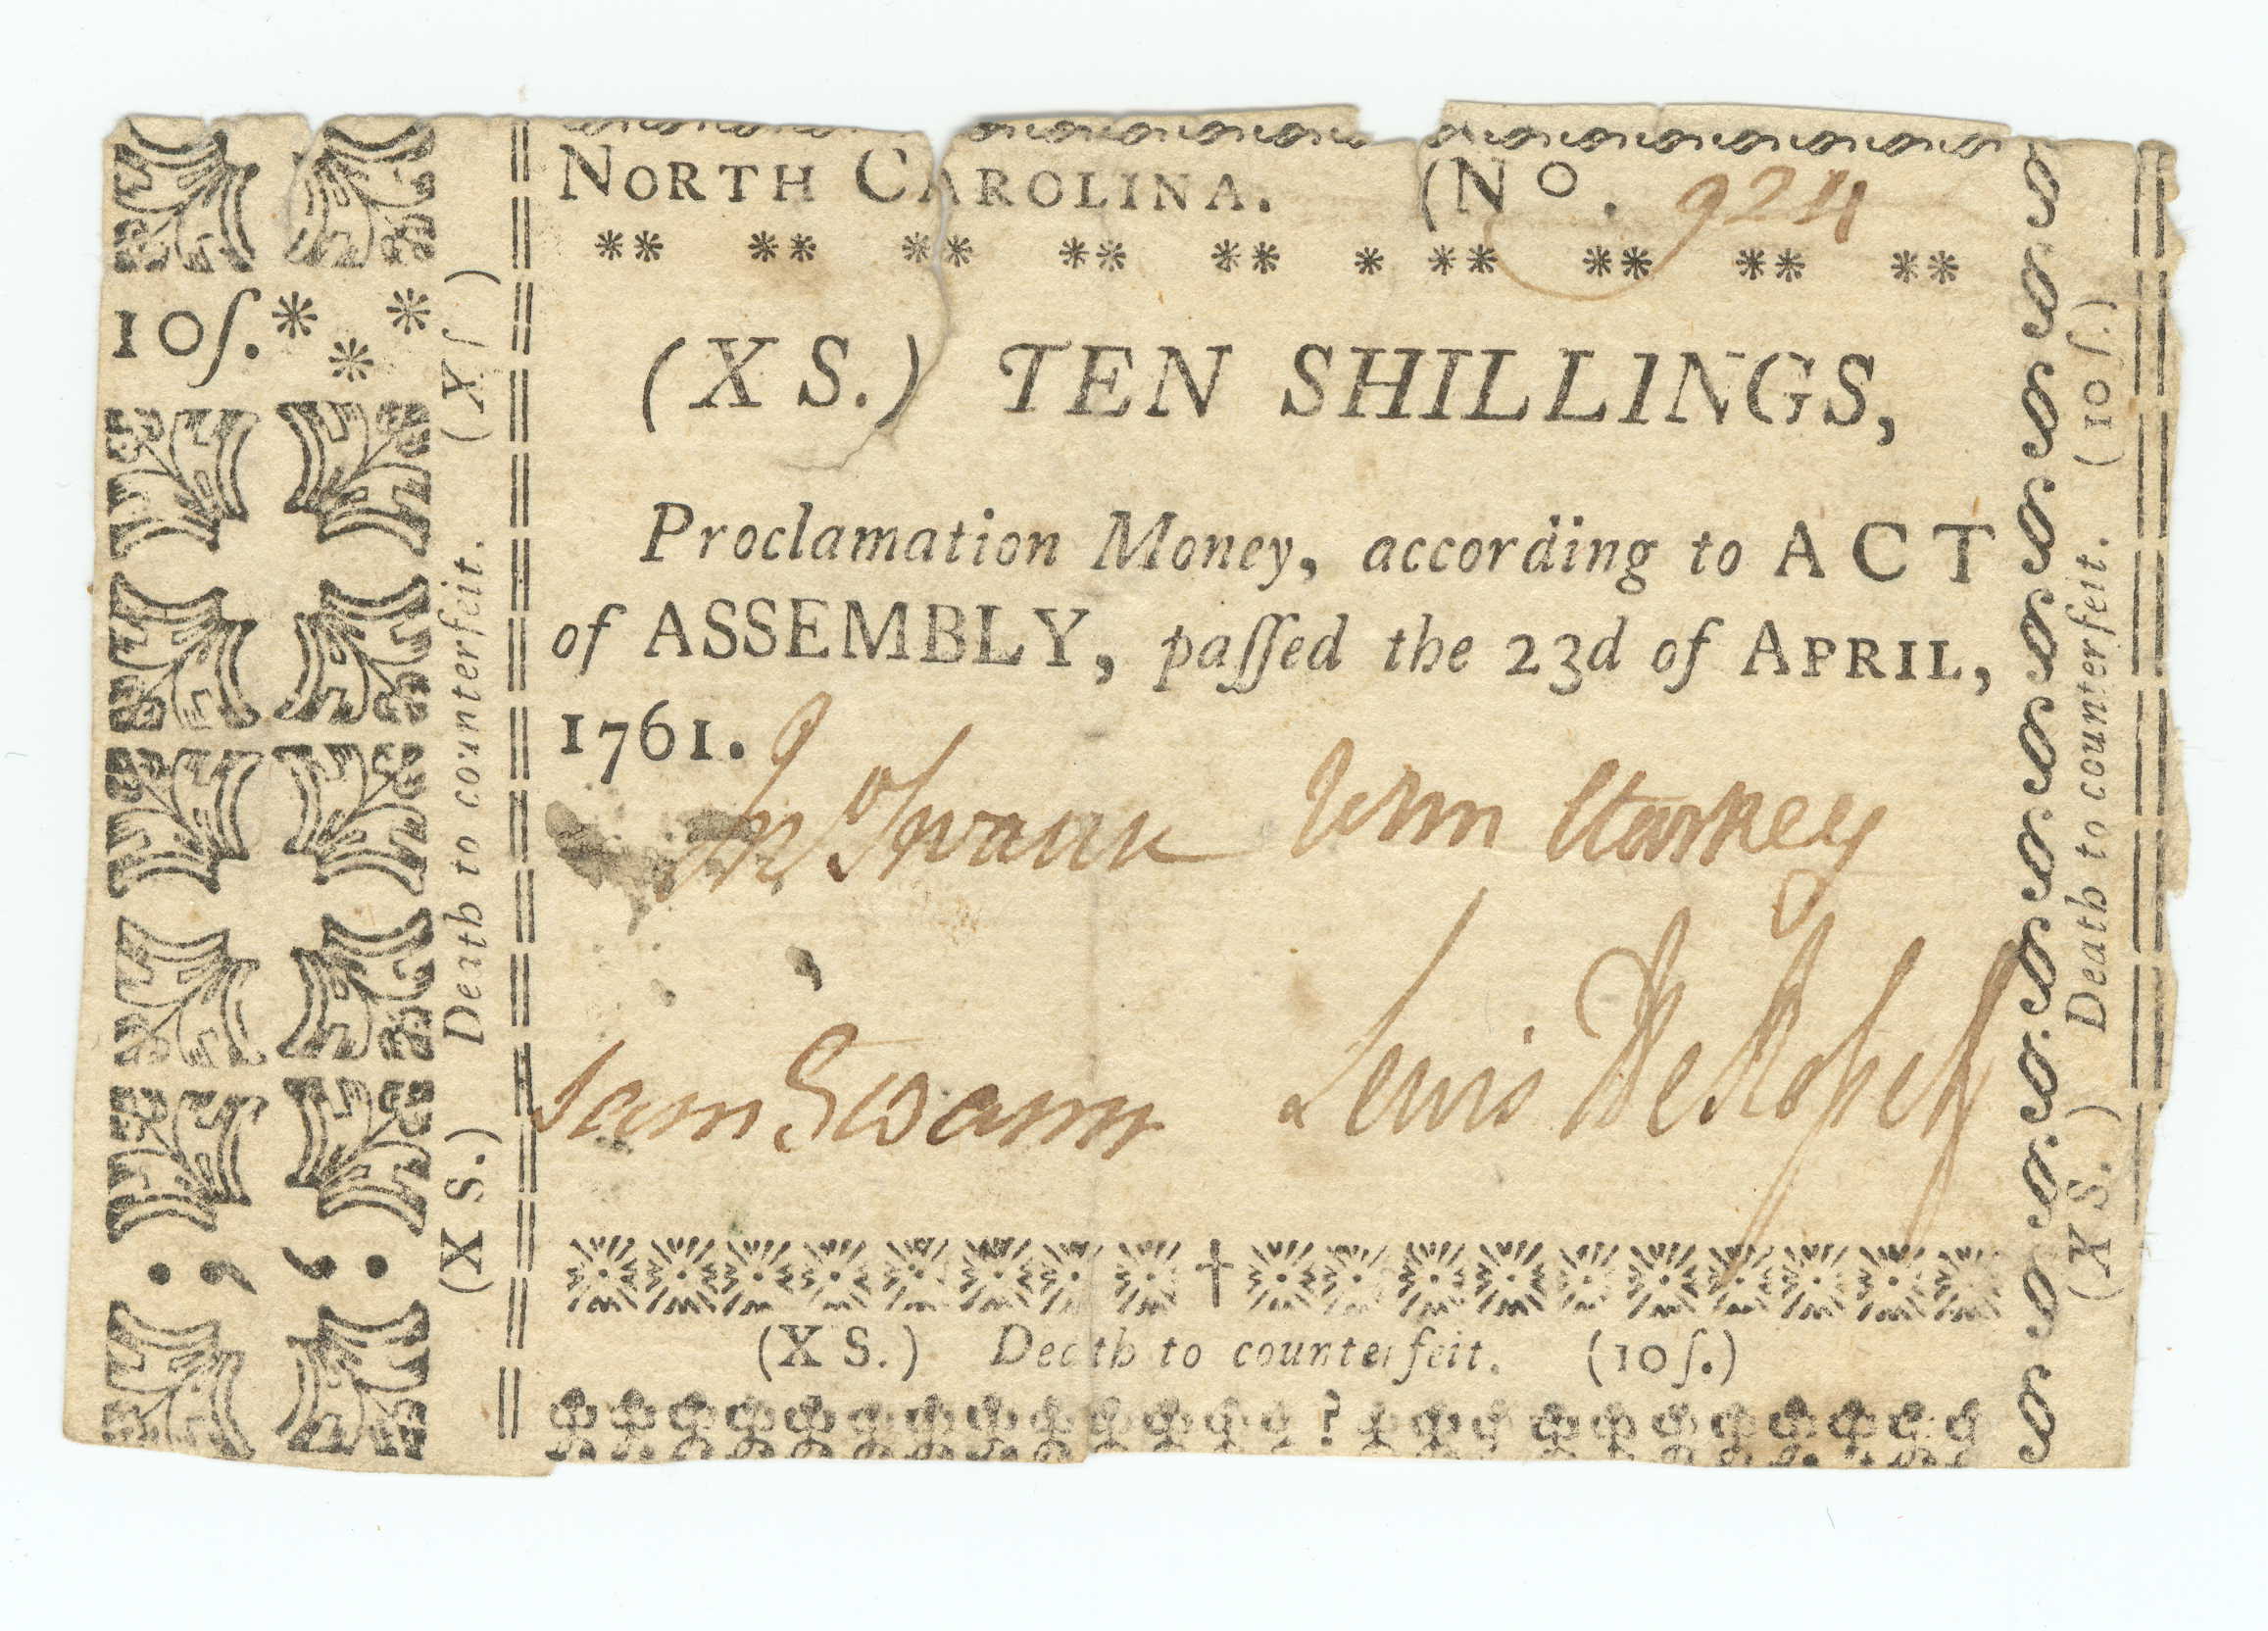 NORTH CAROLINA. (No. 924
10ſ.
(X S.) TEN SHILLINGS,
Proclamation Money, according to ACT
of ASSEMBLY, paſſed the 23d of APRIL,
1761.
Jno Swann Jno Starkey
Sam Swann Lewis DeRosset
(X S.) Death to counterfeit. (10ſ.)
(X S.) Death to counterfeit. (Xſ )
(X S.) Death to counterfeit. (10ſ.)